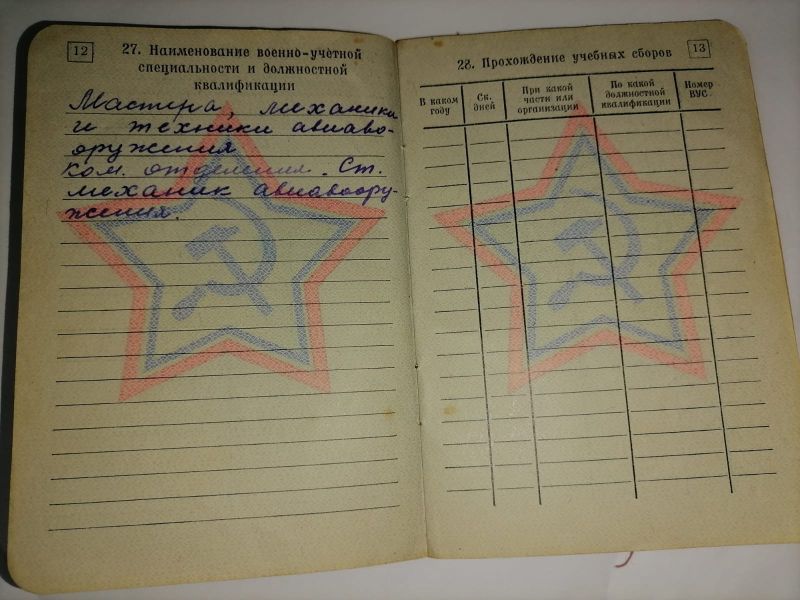 12
27. Наименование военно-учётной
специальности и должностной
квалификации
Мастера, механики
и техники авиаво-
оружения
ком. отделения. Ст.
механик авиавоору-
жения.
28. Прохождение учебных сборов
13
В каком
году
Ск.
дней
При какой
части или
организации
По какой
должностной
квалификации
Номер
ВУС